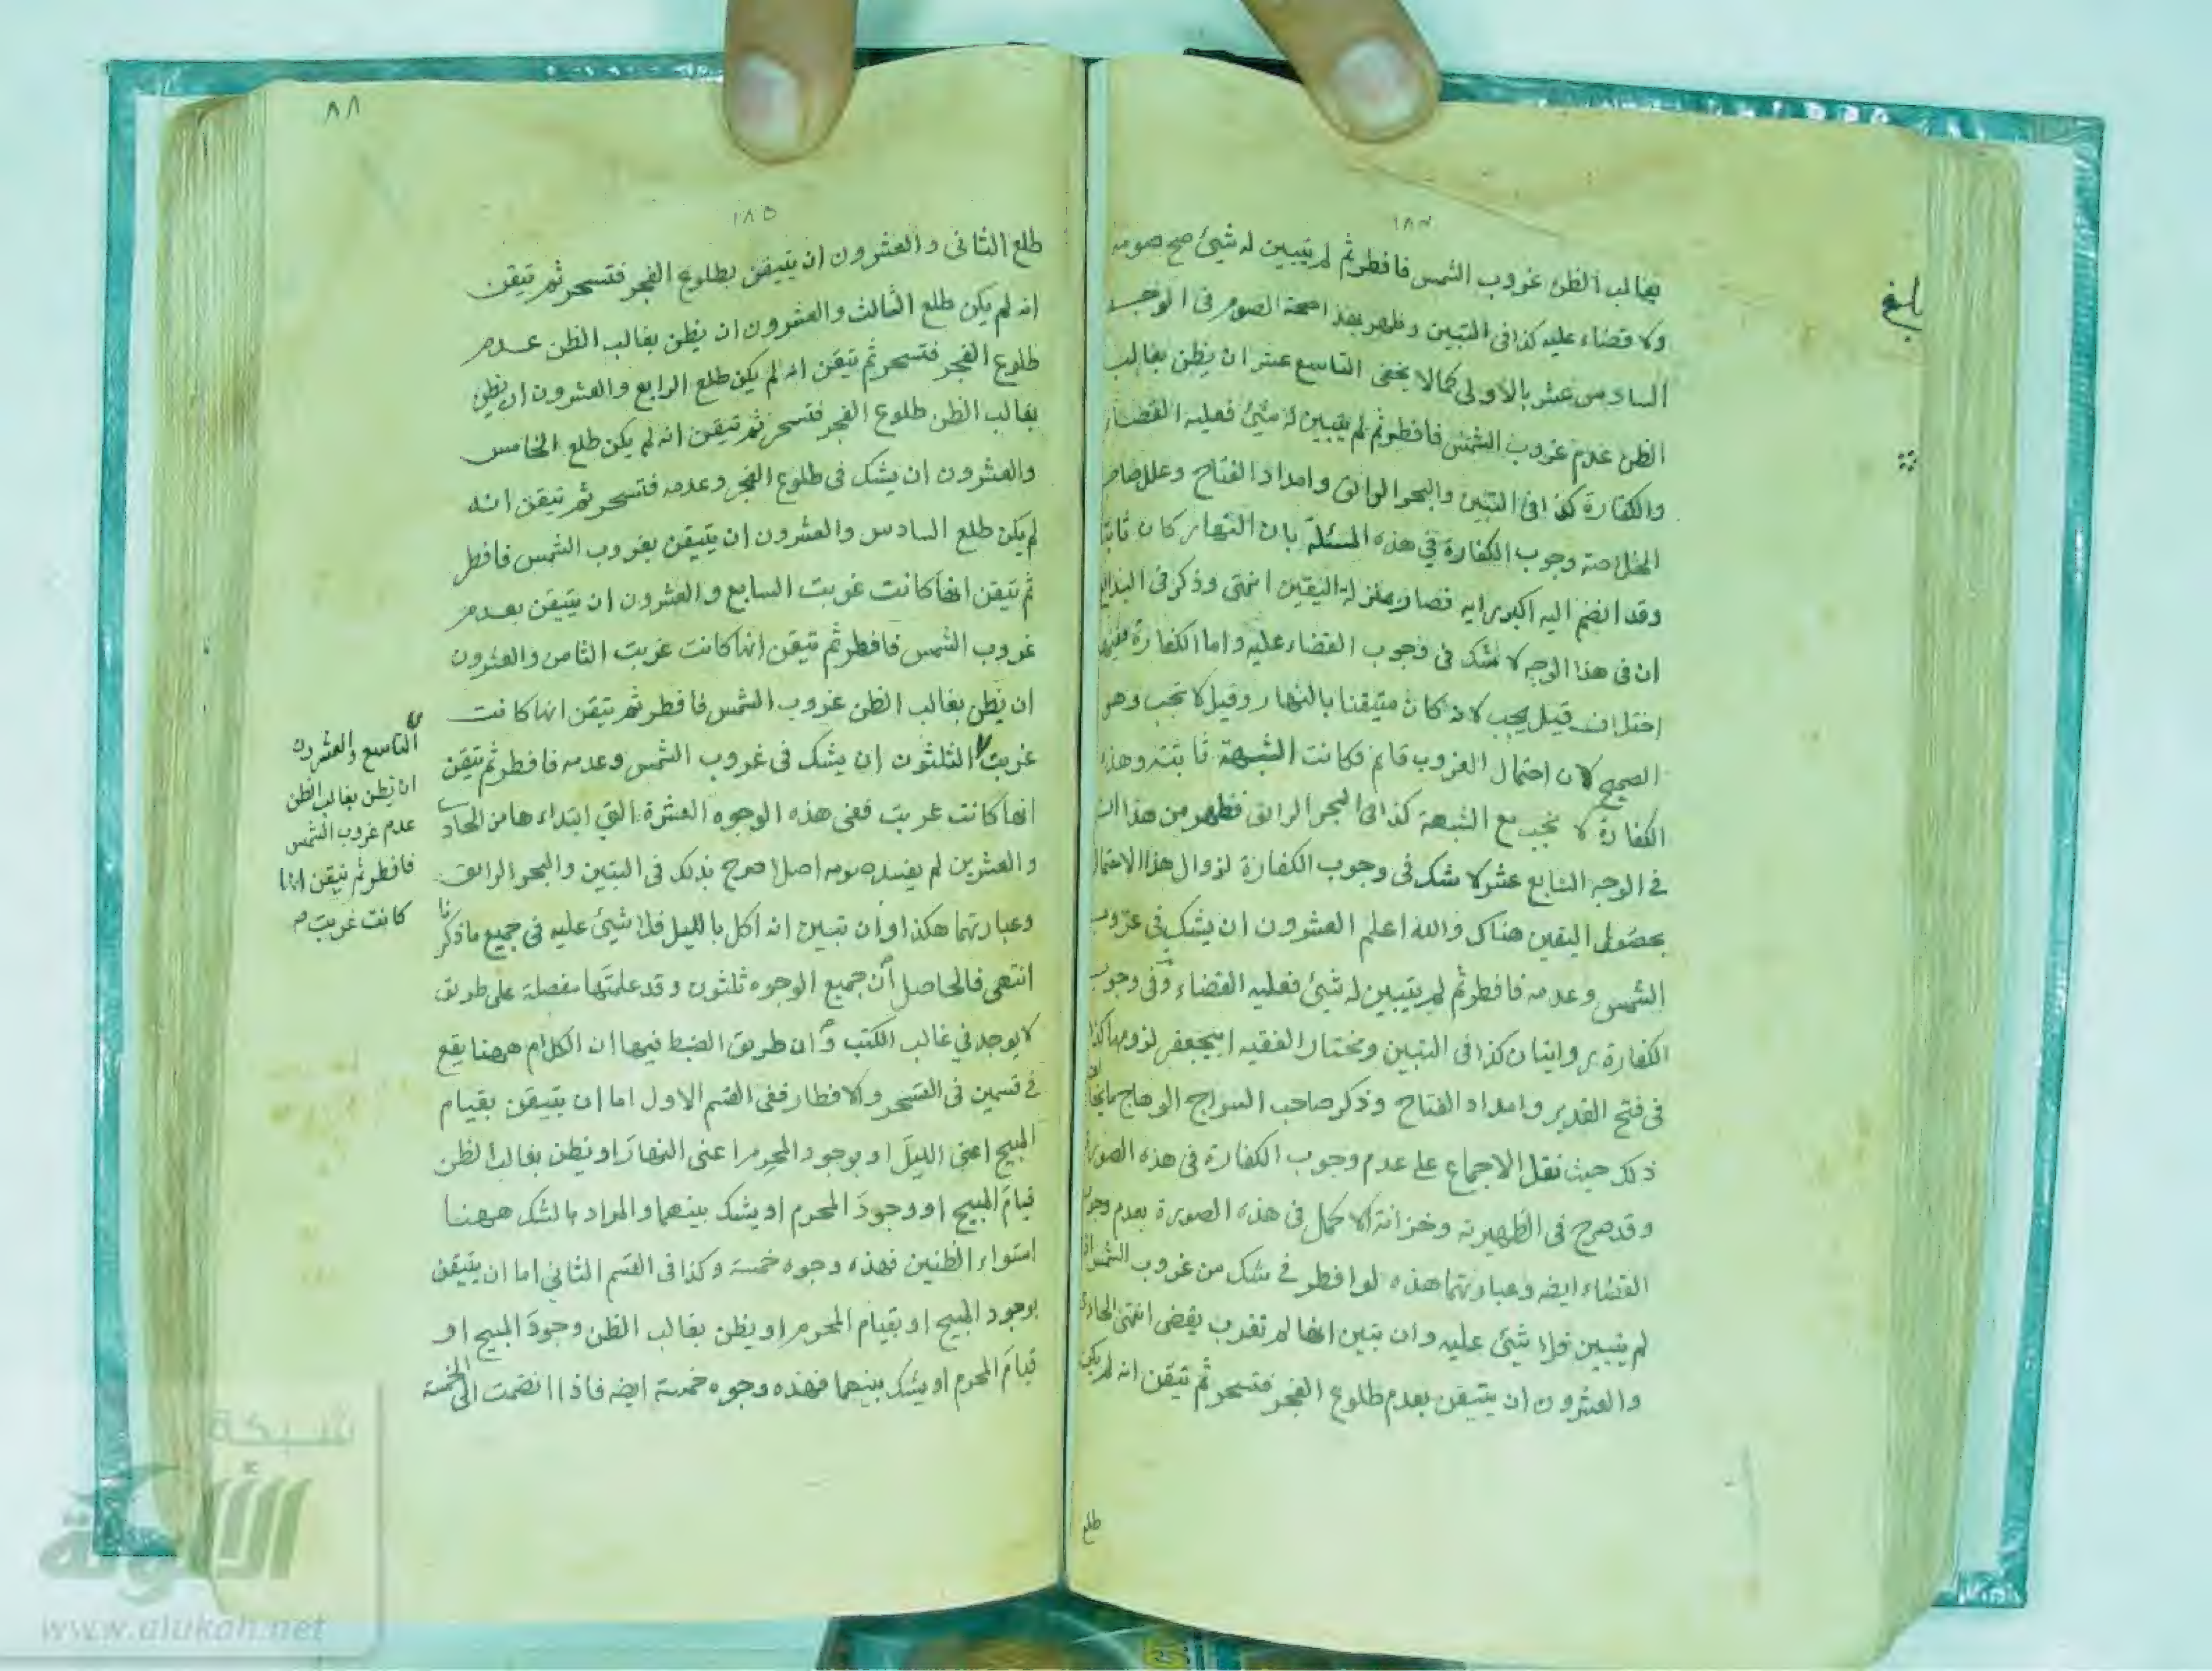 ١٨٤
بغالب الظن غروب الشمس فافطر ثم لم يتبين له شيئ صح صومه
ولا قضاء عليه كذا فى التبين وظهر بهذا صحة الصوم فى الوجه
السادس عشر بالاولى كما لا يخفى التاسع عشر ان يظن بغالب
الظن عدم غروب الشمس فافطر ثم لم يتبين له شيئ فعليه القضاء
والكفارة كذا فى التبين والبحر الرائق وامداد الفتاح وعلل صاحب
الخلاصة وجوب الكفارة فى هذه المسئلة بان النهار كان ثابتا
وقد انضم اليه اكبر رايه فصار بمنزلة اليقين انتهى وذكر فى البدايع
ان فى هذا الوجه لا شك فى وجوب القضاء عليه واما الكفارة ففيها
اختلاف قيل يجب لانه كان متيقنا بالنهار وقيل لا تجب وهو
الصحيح لان احتمال الغروب قائم فكانت الشبهة ثابتة وهذه
الكفارة لا تجب مع الشبهة كذا فى البحر الرائق فظهر من هذا ان
فى الوجه السابع عشر لا شك فى وجوب الكفارة لزوال هذا الاحتمال
بحصول اليقين هناك والله اعلم العشرون ان يشك فى غروب
الشمس وعدمه فافطر ثم لم يتبين له شيئ فعليه القضاء وفى وجوب
الكفارة روايتان كذا فى التبين ومختار الفقيه ابيجعفر لزومها كذا
فى فتح القدير وامداد الفتاح وذكر صاحب السراج الوهاج ما يخالف
ذلك حيث نقل الاجماع على عدم وجوب الكفارة فى هذه الصورة
وقد صرح فى الظهيرية وخزانة الاكمل فى هذه الصورة بعدم وجوب
القضاء ايضه وعبارتهما هذه لو افطر فى شك من غروب الشمس ان
لم يتبين فلا شيئ عليه وان تبين انها لم تغرب يقضى انتهى الحادى
والعشرون ان يتيقن بعدم طلوع الفجر فتسحر ثم تيقن انه لم يكن
طلع
بلغ
٨٨
١٨٥
طلع الثانى والعشرون ان يتيقن بطلوع الفجر فتسحر ثم تيقن
انه لم يكن طلع الثالث والعشرون ان يظن بغالب الظن عدم
طلوع الفجر فتسحر ثم تيقن انه لم يكن طلع الرابع والعشرون ان يظن
بغالب الظن طلوع الفجر فتسحر ثم تيقن انه لم يكن طلع الخامس
والعشرون ان يشك فى طلوع الفجر وعدمه فتسحر ثم تيقن انه
لم يكن طلع السادس والعشرون ان يتيقن بغروب الشمس فافطر
ثم تيقن انها كانت غربت السابع والعشرون ان يتيقن بعدم
غروب الشمس فافطر ثم تيقن انها كانت غربت الثامن والعشرون
ان يظن بغالب الظن غروب الشمس فافطر ثم تيقن انها كانت
غربت الثلثون ان يشك فى غروب الشمس وعدمه فافطر ثم تيقن
انها كانت غربت ففى هذه الوجوه العشرة التى ابتداءها من الحادى
والعشرين لم يفسد صومه اصلا صرح بذلك فى التبين والبحر الرائق
وعبارتهما هكذا وان تبين انه اكل بالليل فلا شيئ عليه فى جميع ما ذكرنا
انتهى فالحاصل ان جميع الوجوه ثلثون وقد علمتها مفصلة على طريق
لا يوجد فى غالب الكتب وان طريق الضبط فيها ان الكلام ههنا يقع
فى قسمين فى التسحر والافطار ففى القسم الاول اما ان يتيقن بقيام
المبيح اعنى الليل او بوجود المحرم اعنى النهار او يظن بغالب الظن
قيام المبيح او وجود المحرم او يشك بينهما والمراد بالشك ههنا
استواء الظنين فهذه وجوه خمسة وكذا فى القسم الثانى اما ان يتيقن
بوجود المبيح او بقيام المحرم او يظن بغالب الظن وجود المبيح او
قيام المحرم او يشك بينهما فهذه وجوه خمسة ايضه فاذا انضمت الى الخمسة
التاسع والعشرون
ان يظن بغالب الظن
عدم غروب الشمس
فافطر ثم تيقن انها
كانت غربت صح
شبكة
الألوكة
www.alukah.net